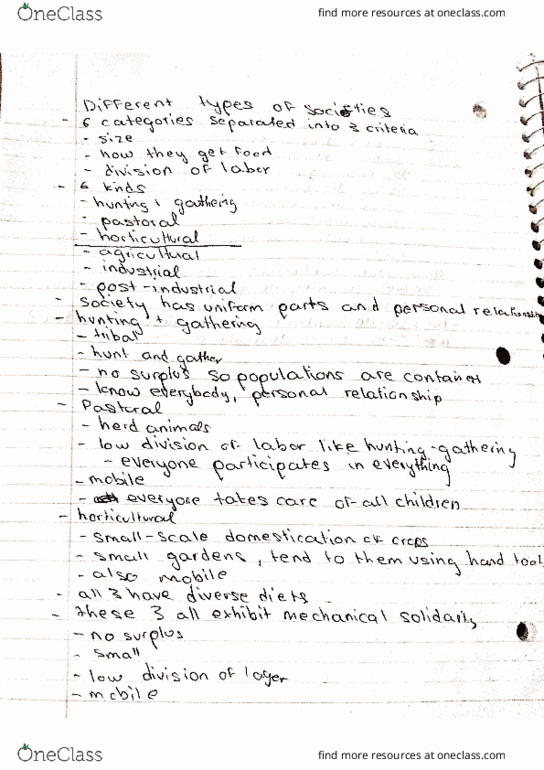 OneClass
find more resources at oneclass.com
Different types of societies
- 6 categories separated into 3 criteria
- size
- how they get food
- division of labor
- 6 kinds
- hunting + gathering
- pastoral
- horticultural
- agricultural
- industrial
- post-industrial
- society has uniform parts and personal relationships
- hunting + gathering
- tribal
- hunt and gather
- no surplus so populations are contained
- know everybody, personal relationship
- Pastoral
- herd animals
- low division of labor like hunting-gathering
- everyone participates in everything
- mobile
- everyone takes care of all children
- horticultural
- small-scale domestication of crops
- small gardens, tend to them using hand tool
- also mobile
- all 3 have diverse diets
- these 3 all exhibit mechanical solidarity
- no surplus
- small
- low division of labor
- mobile
OneClass
find more resources at oneclass.com